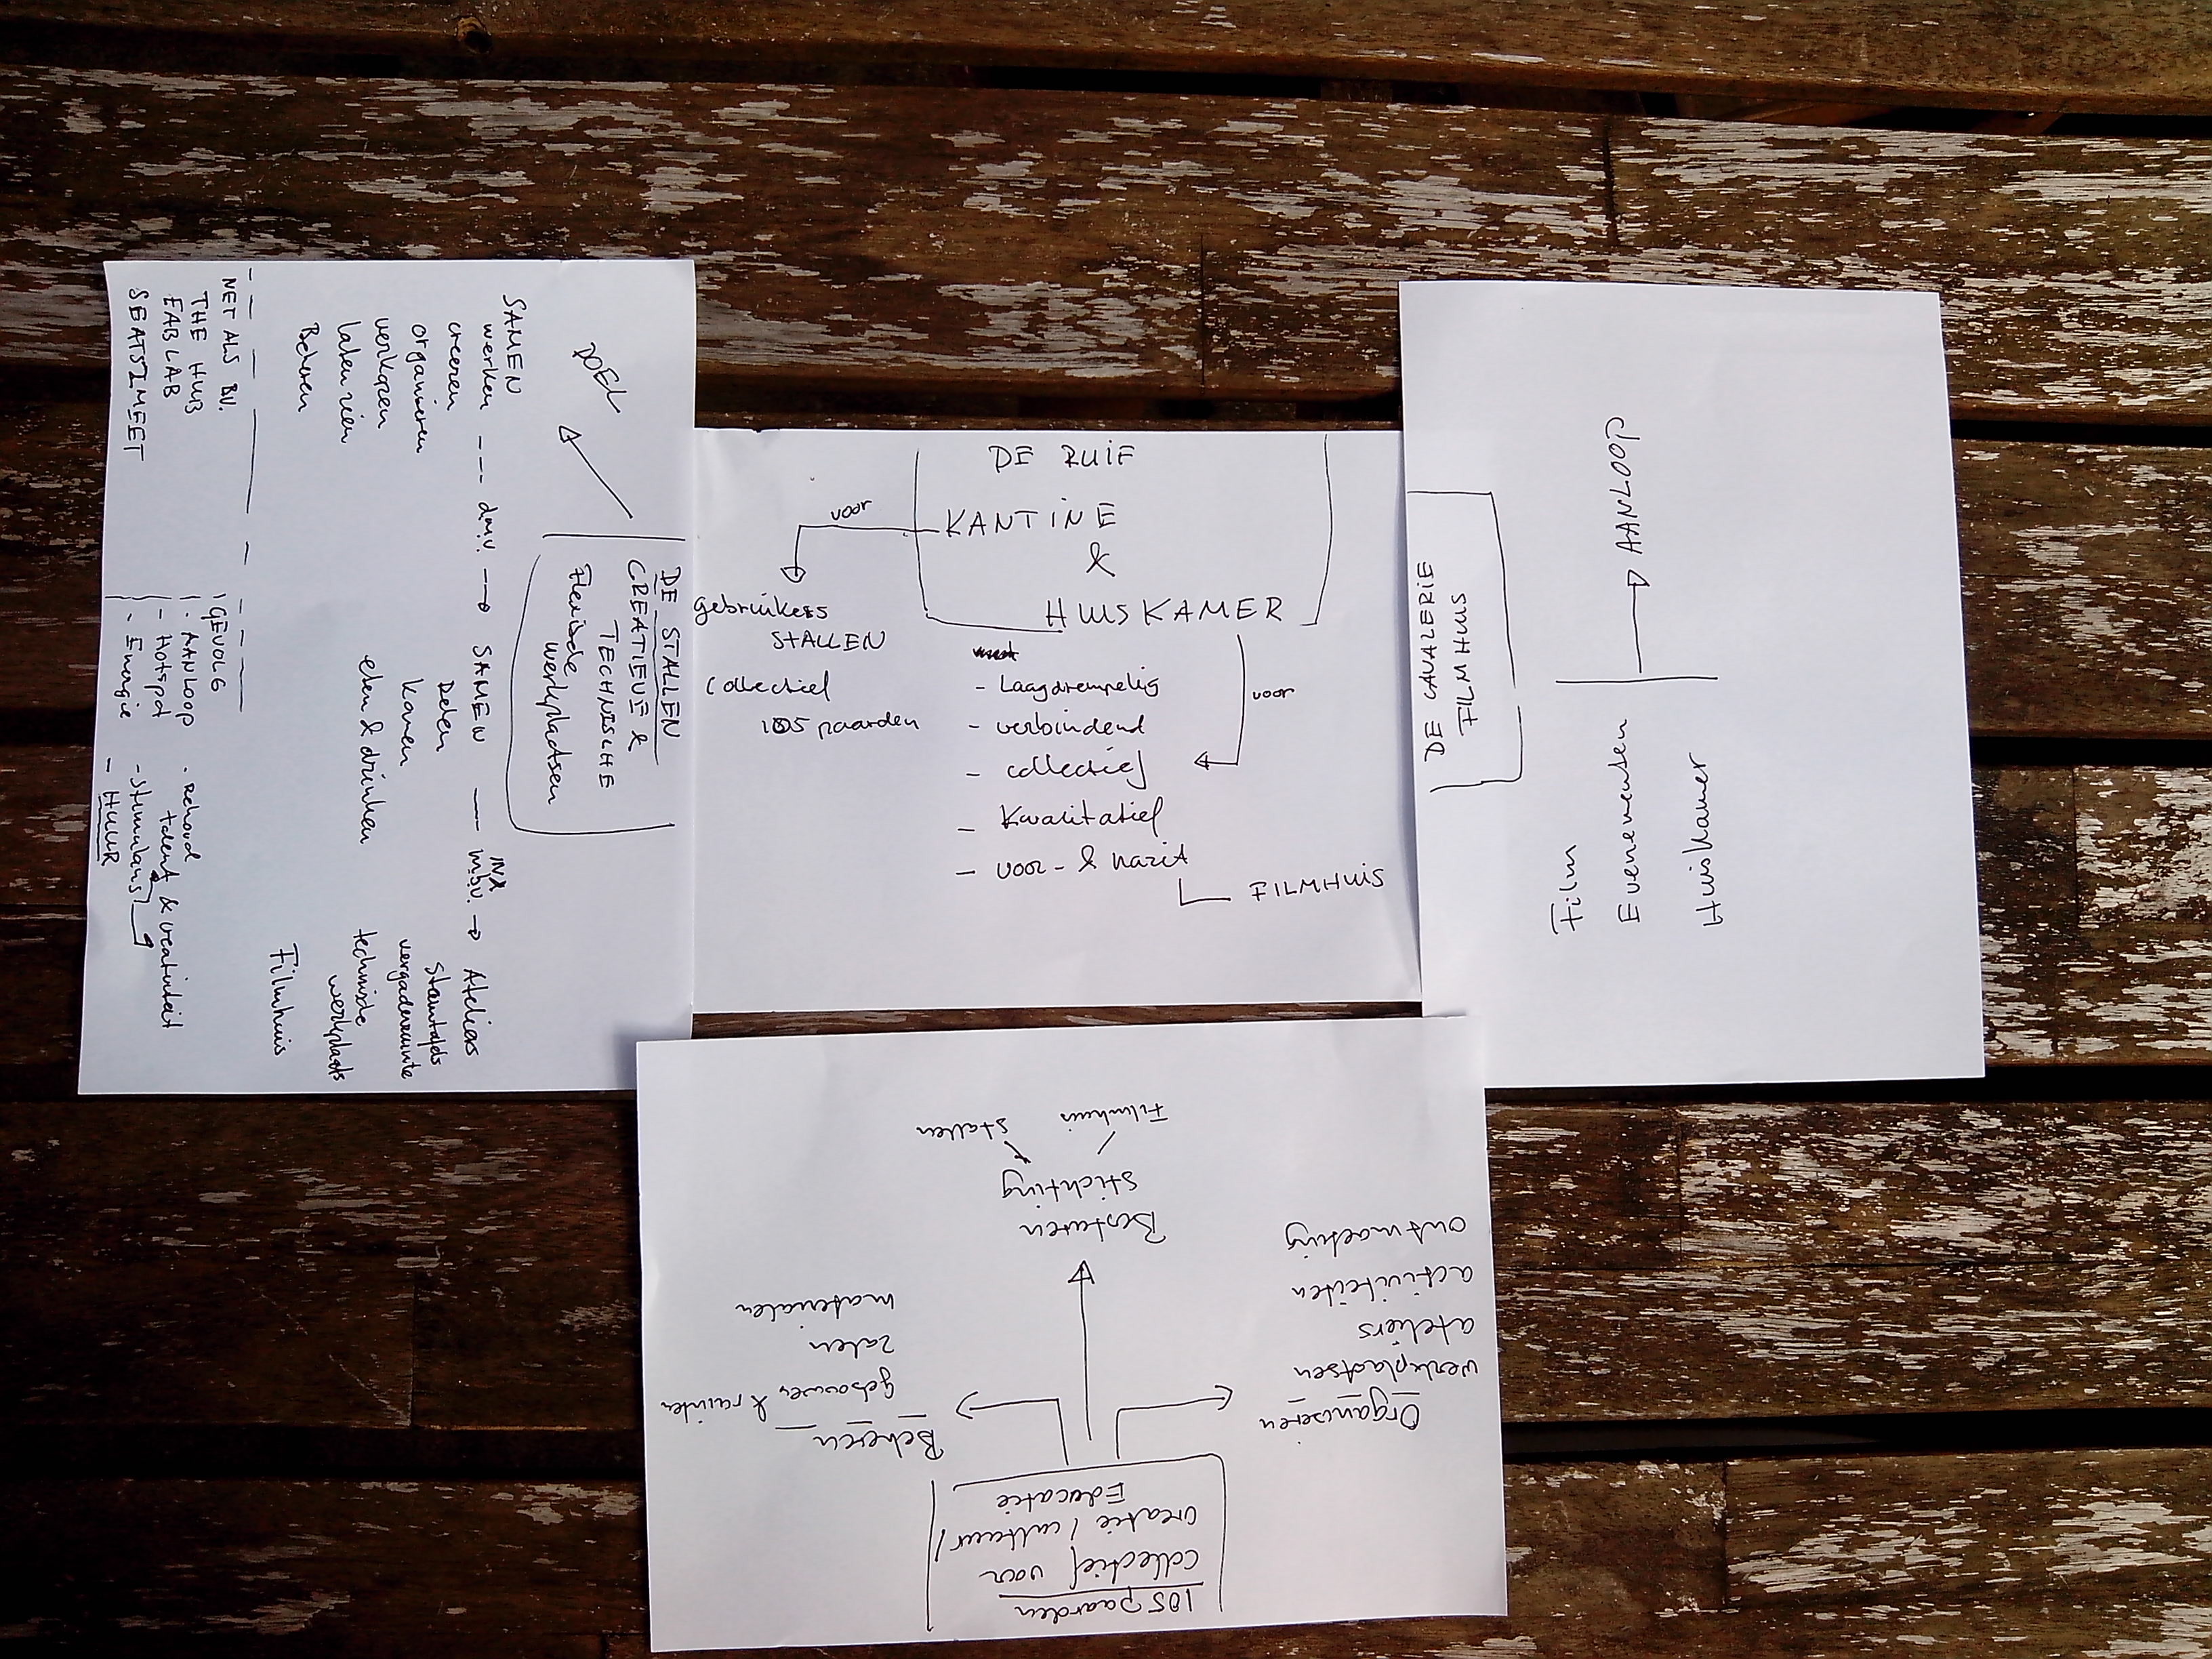 DE RUIF
KANTINE
&
HUISKAMER
voor
gebruikers
STALLEN
Collectief
105 paarden
voor
- Laagdrempelig
- verbindend
- collectief
- Kwalitatief
- voor- & nazit
FILMHUIS
DE STALLEN
CREATIEVE &
TECHNISCHE
Flexische
werkplaatsen
DOEL
SAMEN
werken --- d.m.v. → SAMEN — m.b.v. → Ateliers
creeren
organiseren
verkopen
laten zien
Beheren
Delen
Kopen
eten & drinken
Stamtafels
vergaderruimte
technische
werkplaats
Filmhuis
NET ALS BV.
THE HUB
FABLAB
SEATS2MEET
GEVOLG
. AANLOOP
- Hotspot
. Energie
. Behoud
talent & creativiteit
- Stimulans
- HUUR
DE CAVALERIE
FILMHUIS
AANLOOP
Film
Evenementen
Huiskamer
105 paarden
collectief voor
creatie / cultuur /
Educatie
Organiseren
werkplaatsen
ateliers
activiteiten
ontmoeting
Besturen
Stichting
Filmhuis
Stallen
Beheren
gebouwen & ruimten
zalen
materialen